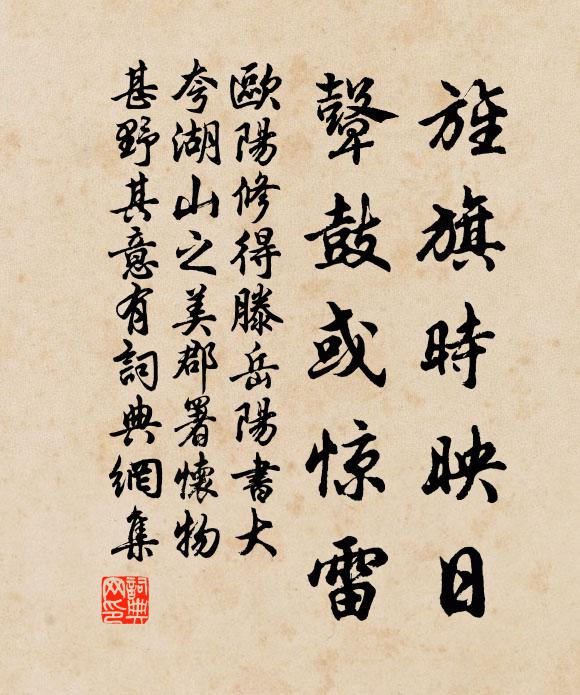 旌旗時映日
鼙鼓或惊雷
歐陽修得滕岳陽書大
夸湖山之美郡署懷物
甚野其意有詞典網集
詞典
网印